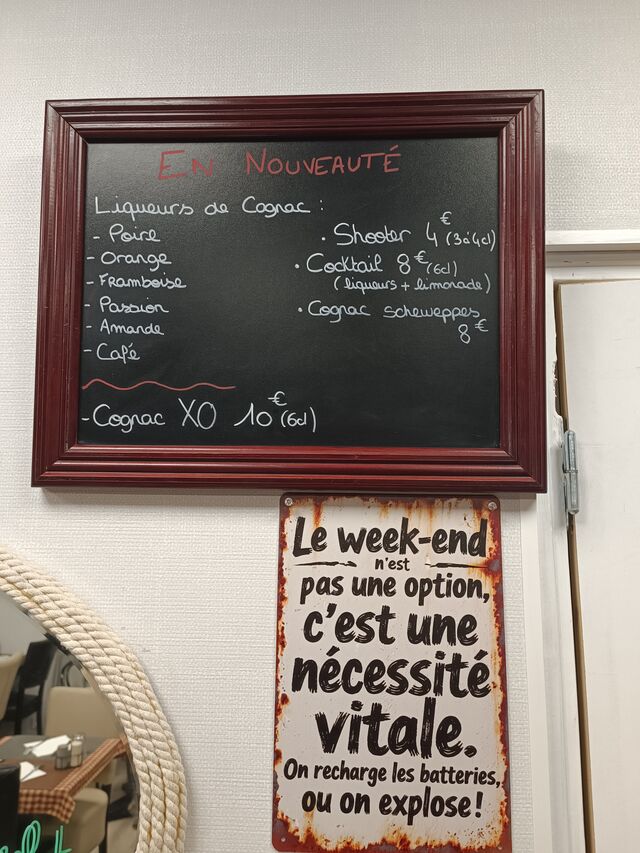 EN NOUVEAUTÉ
Liqueurs de Cognac :
- Poire
- Orange
- Framboise
- Passion
- Amande
- Café
• Shooter 4€ (3à4cl)
• Cocktail 8€ (6cl)
(liqueurs + limonade)
• Cognac scheweppes
8€
- Cognac XO 10€ (6cl)
Le week-end
n'est
pas une option,
c'est une
nécessité
vitale.
On recharge les batteries,
ou on explose !